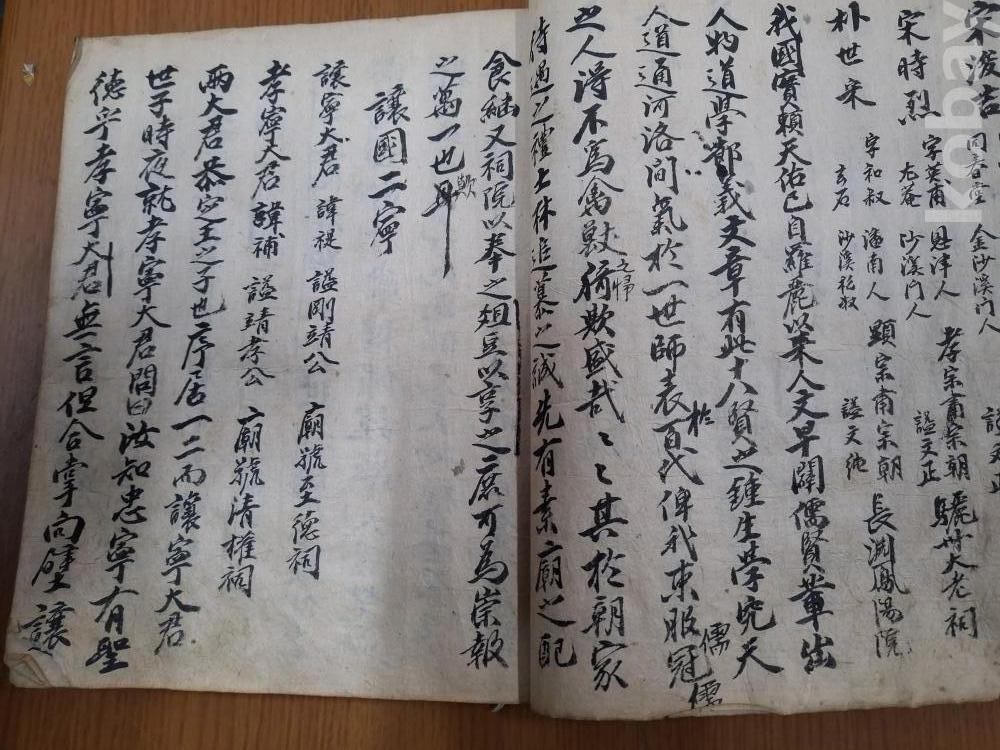 宋浚吉 同春堂 金沙溪門人
宋時烈 字英甫 尤菴 恩津人 沙溪門人 孝宗肅宗朝 謚文正 驪州大老祠
朴世采 字和叔 玄石 潘南人 沙溪私叔 顯宗肅宗朝 謚文純 長淵鳳陽院
我國實賴天佑已自羅麗以來人文早闢儒賢輩出
人物道學鄒義文章有此十八賢之鍾生學究天
人道通河洛間氣於一世師表於百代俾我東服冠儒
之人得不爲禽獸之歸猗歟盛哉〻〻其於朝家
時遇之禮士林追慕之誠先有素廟之配
食繼又祠院以奉之俎豆以享之庶可爲崇報
之萬一也歟
讓國二寧
讓寧大君 諱禔 謚剛靖公 廟號至德祠
孝寧大君 諱補 謚靖孝公 廟號清權祠
兩大君恭定王之子也序居一二而讓寧大君
世子時夜就孝寧大君問曰汝知忠寧有聖
德乎孝寧大君無言但合掌向壁讓
kobay